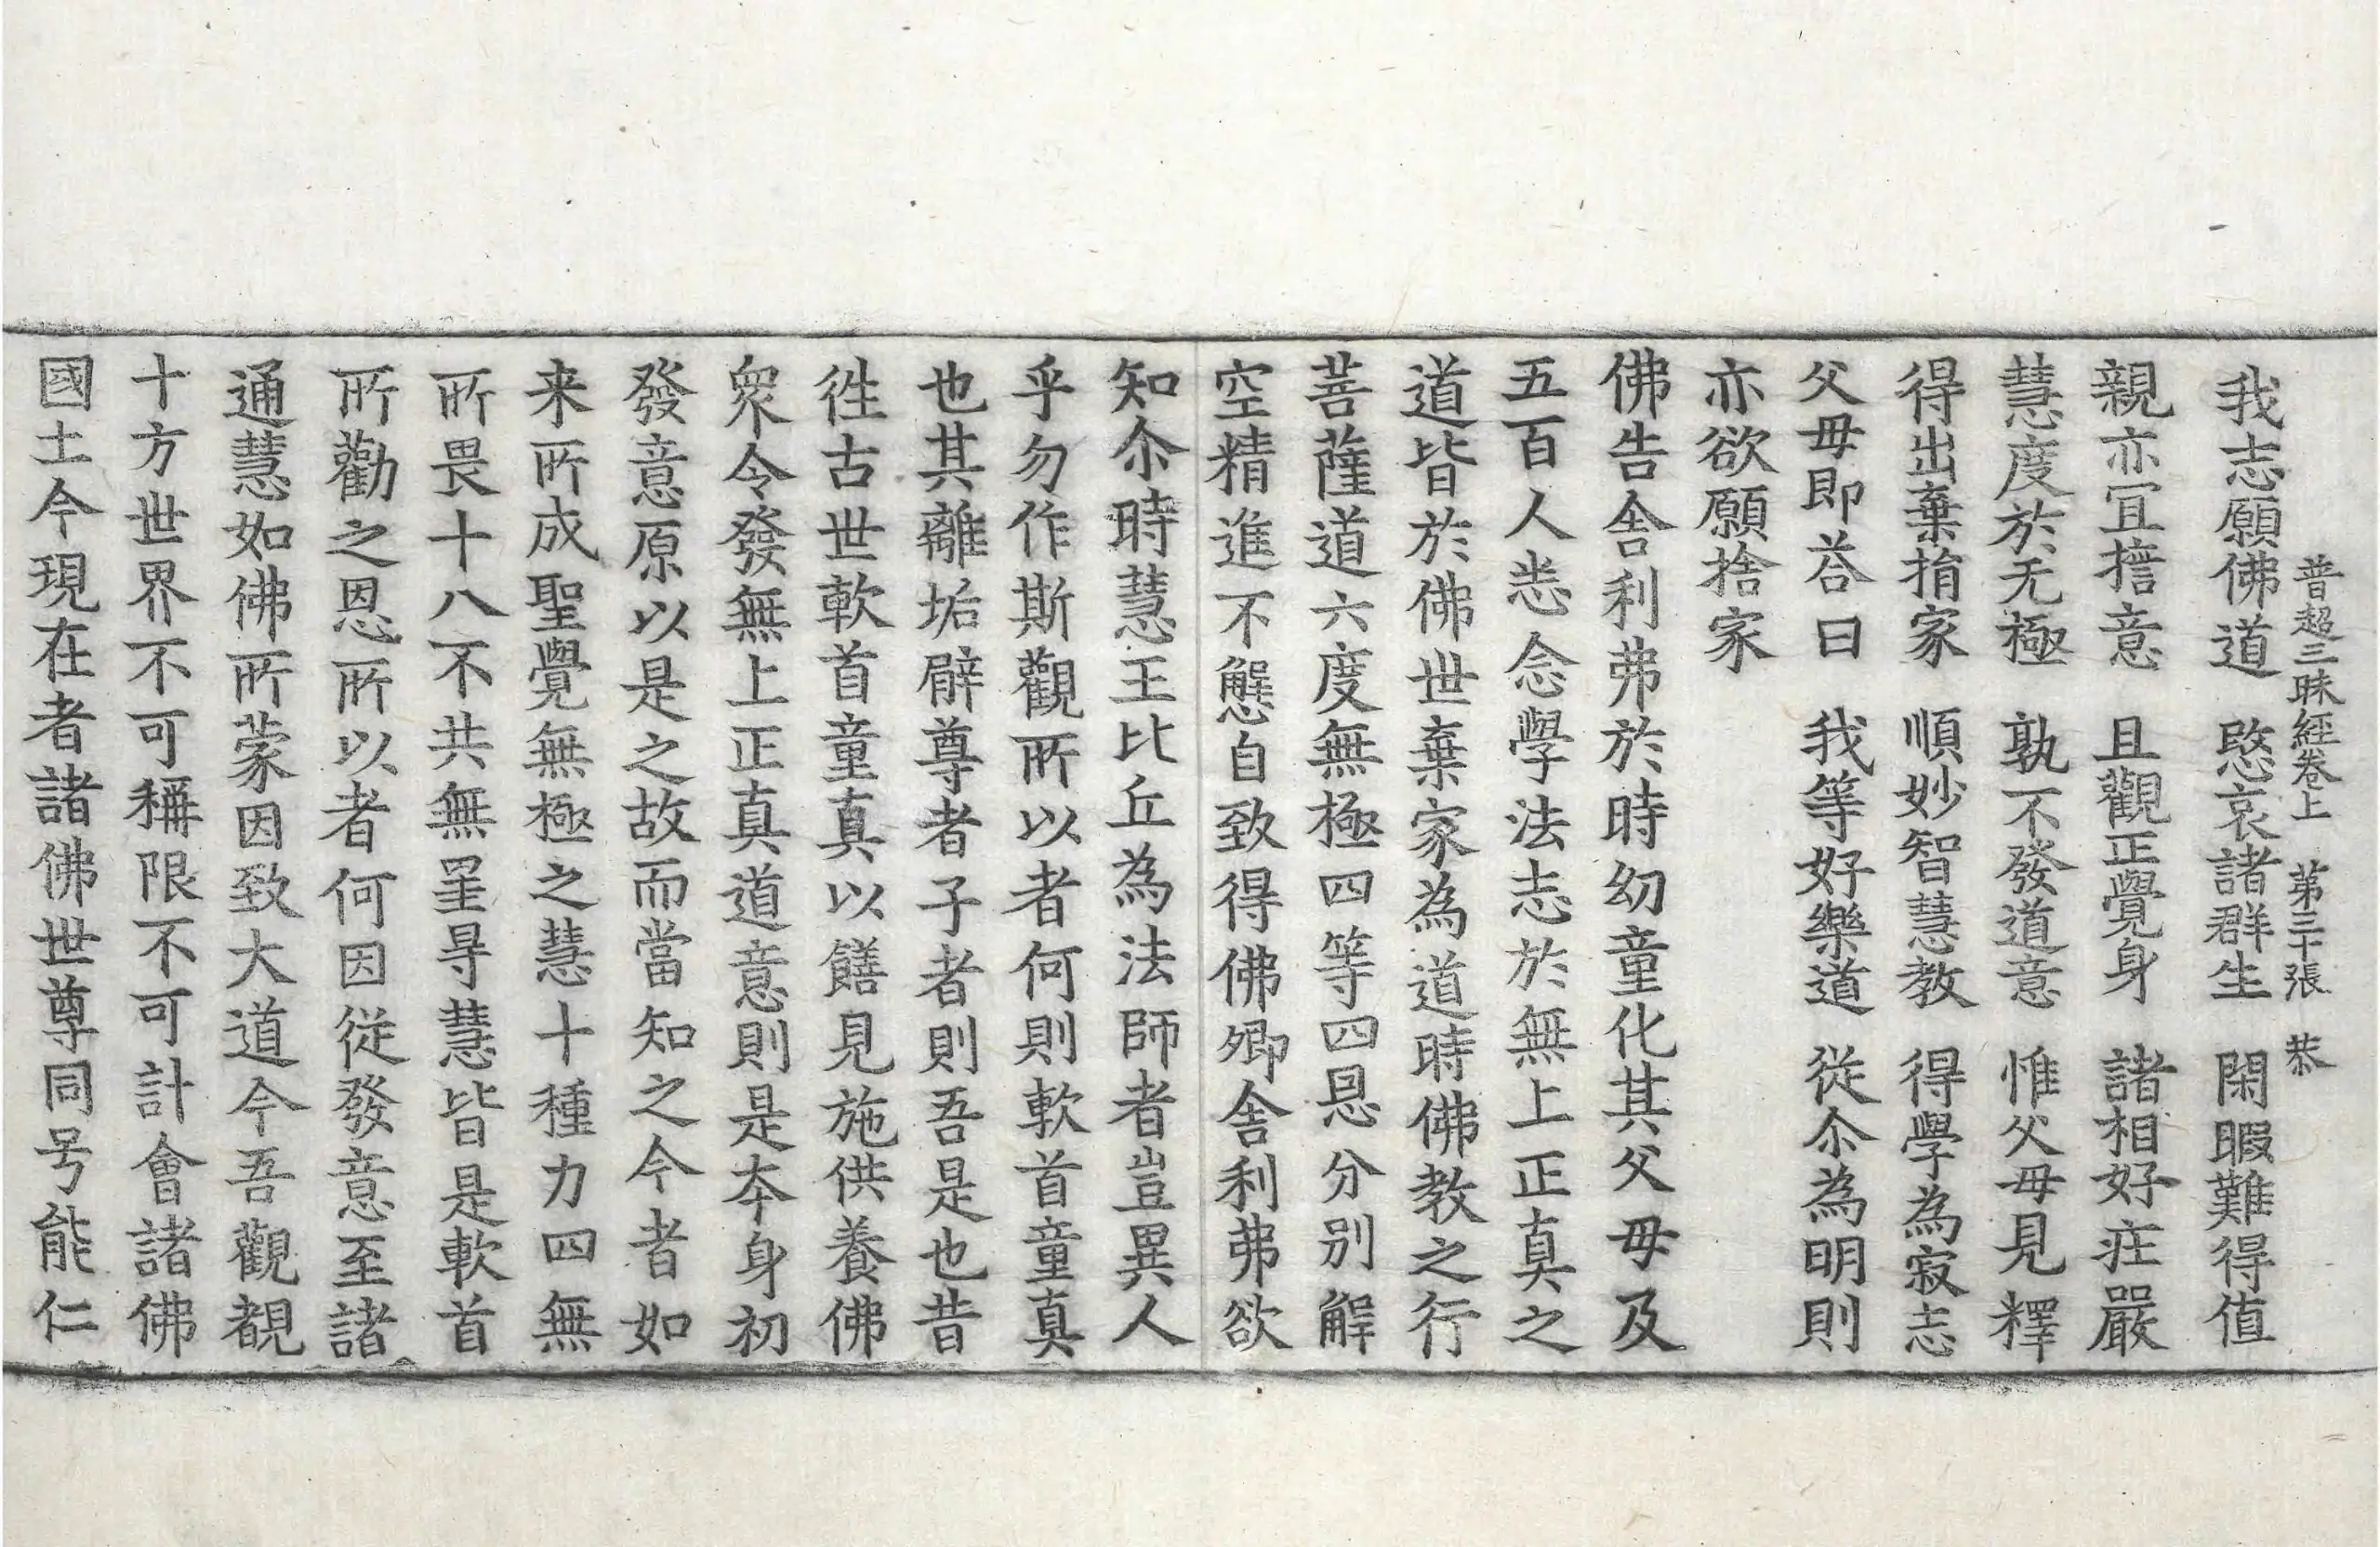 普超三昧經卷上　第三十張　恭
我志願佛道　愍哀諸群生　閑暇難得值
親亦宜擔意　且觀正覺身　諸相好莊嚴
慧度於无極　孰不發道意　惟父母見釋
得出棄捐家　順妙智慧教　得學為寂志
父母即荅曰　我等好樂道　從尒為明則
亦欲願捨家
佛告舍利弗於時幼童化其父母及
五百人恙念學法志於無上正真之
道皆於佛世棄家為道時佛教之行
菩薩道六度無極四等四恩分別解
空精進不懈自致得佛卿舍利弗欲
知尒時慧王比丘為法師者豈異人
乎勿作斯觀所以者何則軟首童真
也其離垢臂尊者子者則吾是也昔
徃古世軟首童真以饍見施供養佛
衆令發無上正真道意則是夲身初
發意原以是之故而當知之今者如
来所成聖覺無極之慧十種力四無
所畏十八不共無罣㝵慧皆是軟首
所勸之恩所以者何因從發意至諸
通慧如佛所蒙因致大道今吾觀覩
十方世界不可稱限不可計會諸佛
國土今現在者諸佛世尊同号能仁